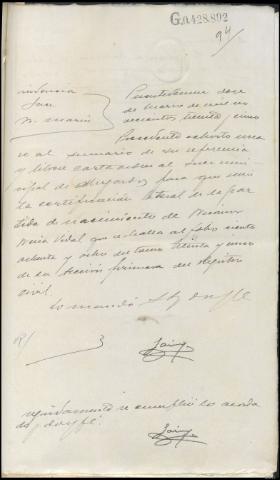 G.0.428.892
94
Providencia
Juez
Sr. Marin
Puentedeume doce
de Marzo de mil no
vecientos treinta y uno
Precedente exhorto una
se al sumario de su referencia
y líbrese carta orden al Juez muni
cipal de para que remi
ta certificación literal de la par
tida de nacimiento de Ramon
Neira Vidal que se halla al folio ciento
ochenta y ocho del tomo treinta y uno
de la sección primera del Registro
civil.
Lo mandó S Sª doy fe
R/
Seguidamente se cumplió lo acorda
do, doy fe.